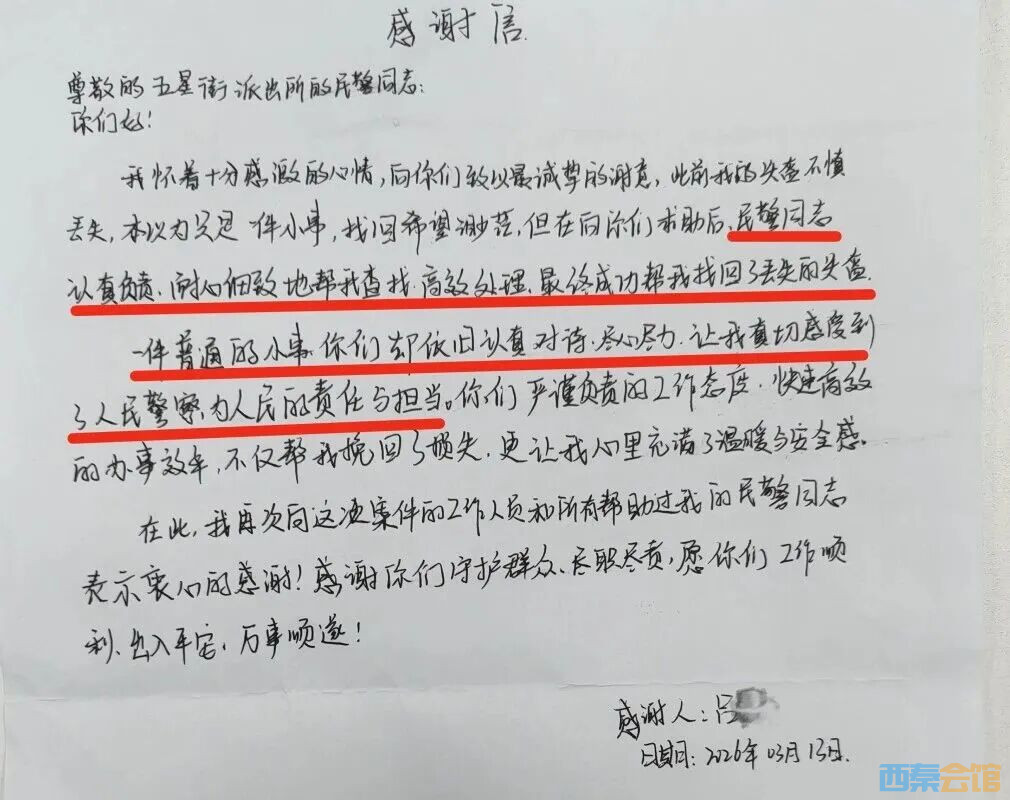 感谢信
尊敬的五星街派出所的民警同志:
你们好!
我怀着十分感激的心情,向你们致以最诚挚的谢意,此前我的头盔不慎
丢失,本以为只是一件小事,找回希望渺茫,但在向你们求助后,民警同志
认真负责、耐心细致地帮我查找,高效处理,最终成功帮我找回了丢失的头盔.
一件普通的小事,你们却依旧认真对待、尽心尽力,让我真切感受到
了人民警察为人民的责任与担当。你们严谨负责的工作态度,快速高效
的办事效率,不仅帮我挽回了损失,更让我心里充满了温暖与安全感.
在此,我再次向这次案件的工作人员和所有帮助过我的民警同志
表示衷心的感谢!感谢你们守护群众、尽职尽责,愿你们工作顺
利、出入平安,万事顺遂!
感谢人:吕
日期:2026年03月13日.
西秦会馆